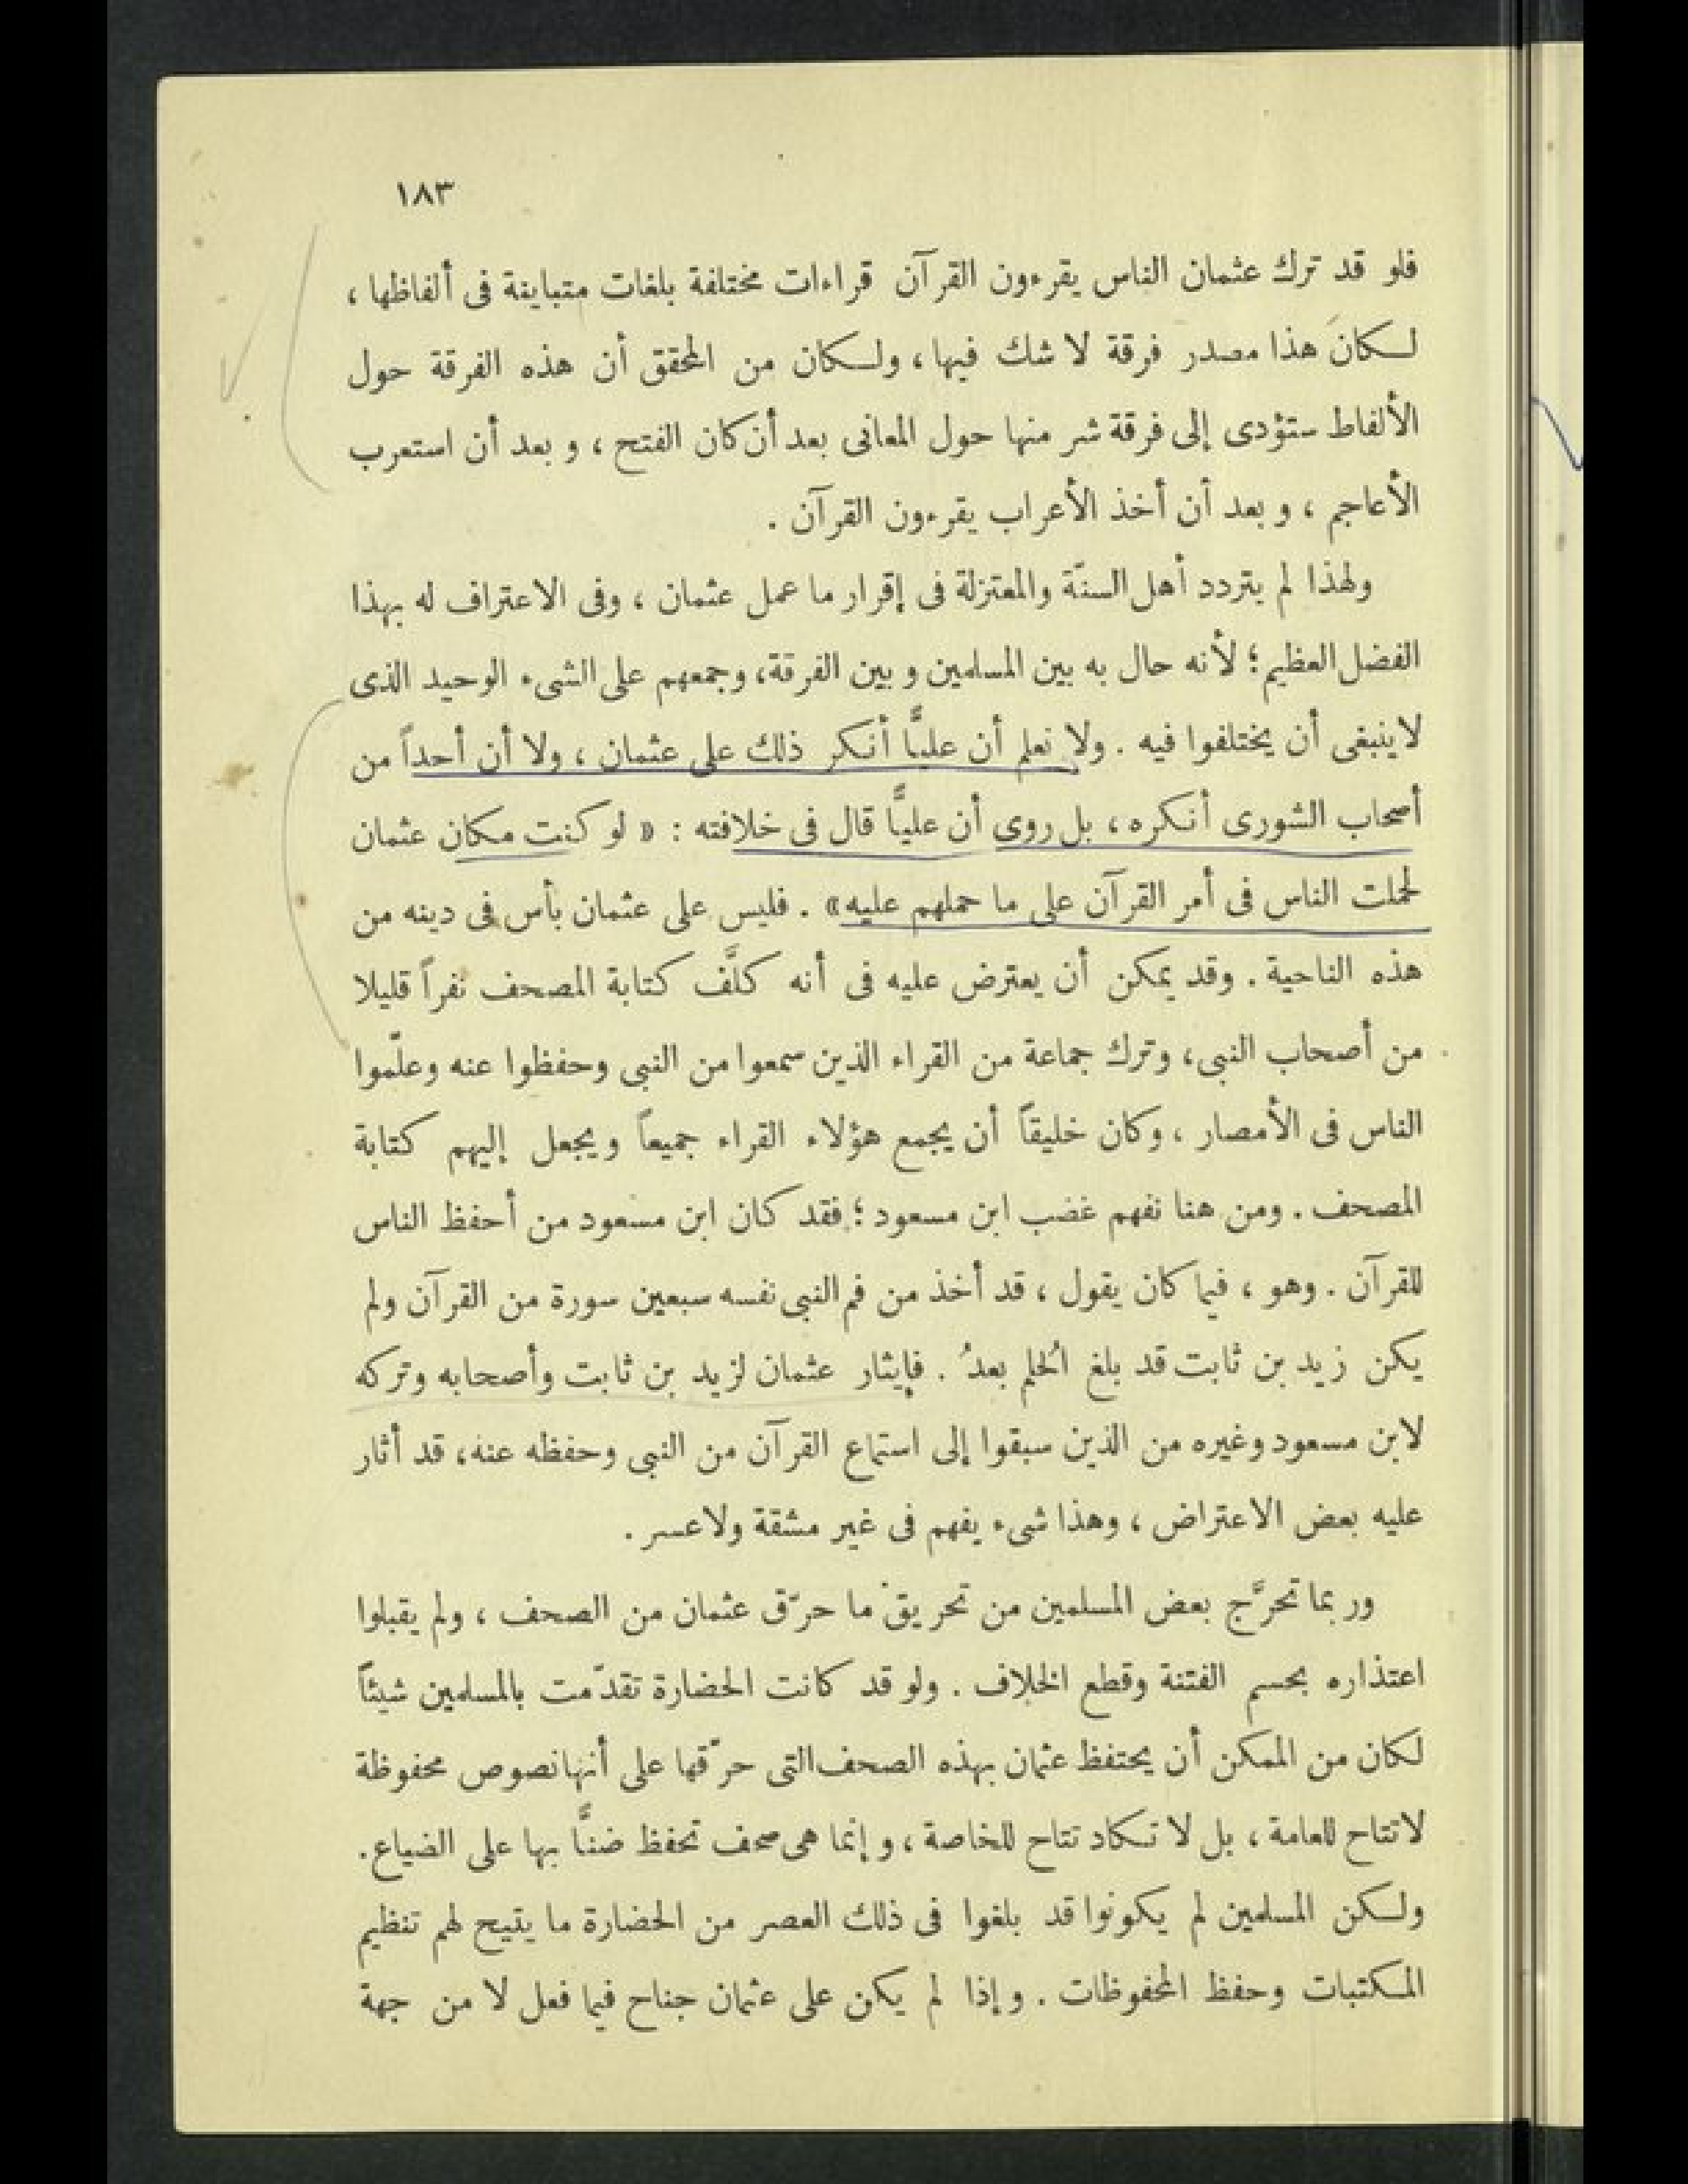 ١٨٣
فلو قد ترك عثمان الناس يقرءون القرآن قراءات مختلفة بلغات متباينة فى ألفاظها ،
لكانَ هذا مصدر فرقة لا شك فيها ، ولكان من المحقق أن هذه الفرقة حول
الألفاط ستؤدى إلى فرقة شر منها حول المعانى بعد أن كان الفتح ، وبعد أن استعرب
الأعاجم ، وبعد أن أخذ الأعراب يقرءون القرآن .
ولهذا لم يتردد أهل السنّة والمعتزلة فى إقرار ما عمل عثمان ، وفى الاعتراف له بهذا
الفضل العظيم ؛ لأنه حال به بين المسلمين وبين الفرقة ، وجمعهم على الشىء الوحيد الذى
لا ينبغى أن يختلفوا فيه . ولا نعلم أن عليًّا أنكر ذلك على عثمان ، ولا أن أحداً من
أصحاب الشورى أنكره ، بل روى أن عليًّا قال فى خلافته : « لو كنت مكان عثمان
لحملت الناس فى أمر القرآن على ما حملهم عليه » . فليس على عثمان بأس فى دينه من
هذه الناحية . وقد يمكن أن يعترض عليه فى أنه كلَّف كتابة المصحف نفراً قليلا
من أصحاب النبى ، وترك جماعة من القراء الذين سمعوا من النبى وحفظوا عنه وعلّموا
الناس فى الأمصار ، وكان خليقاً أن يجمع هؤلاء القراء جميعاً ويجعل إليهم كتابة
المصحف . ومن هنا نفهم غضب ابن مسعود ؛ فقد كان ابن مسعود من أحفظ الناس
للقرآن . وهو ، فيما كان يقول ، قد أخذ من فم النبى نفسه سبعين سورة من القرآن ولم
يكن زيد بن ثابت قد بلغ الحُلم بعدُ . فإيثار عثمان لزيد بن ثابت وأصحابه وتركه
لابن مسعود وغيره من الذين سبقوا إلى استماع القرآن من النبى وحفظه عنه ، قد أثار
عليه بعض الاعتراض ، وهذا شىء يفهم فى غير مشقة ولا عسر .
وربما تحرَّج بعض المسلمين من تحريق ما حرّق عثمان من الصحف ، ولم يقبلوا
اعتذاره بحسم الفتنة وقطع الخلاف . ولو قد كانت الحضارة تقدّمت بالمسلمين شيئاً
لكان من الممكن أن يحتفظ عثمان بهذه الصحف التى حرّقها على أنها نصوص محفوظة
لا تتاح للعامة ، بل لا تكاد تتاح للخاصة ، وإنما هى صحف تحفظ ضنًّا بها على الضياع .
ولكن المسلمين لم يكونوا قد بلغوا فى ذلك العصر من الحضارة ما يتيح لهم تنظيم
المكتبات وحفظ المحفوظات . وإذا لم يكن على عثمان جناح فيما فعل لا من جهة